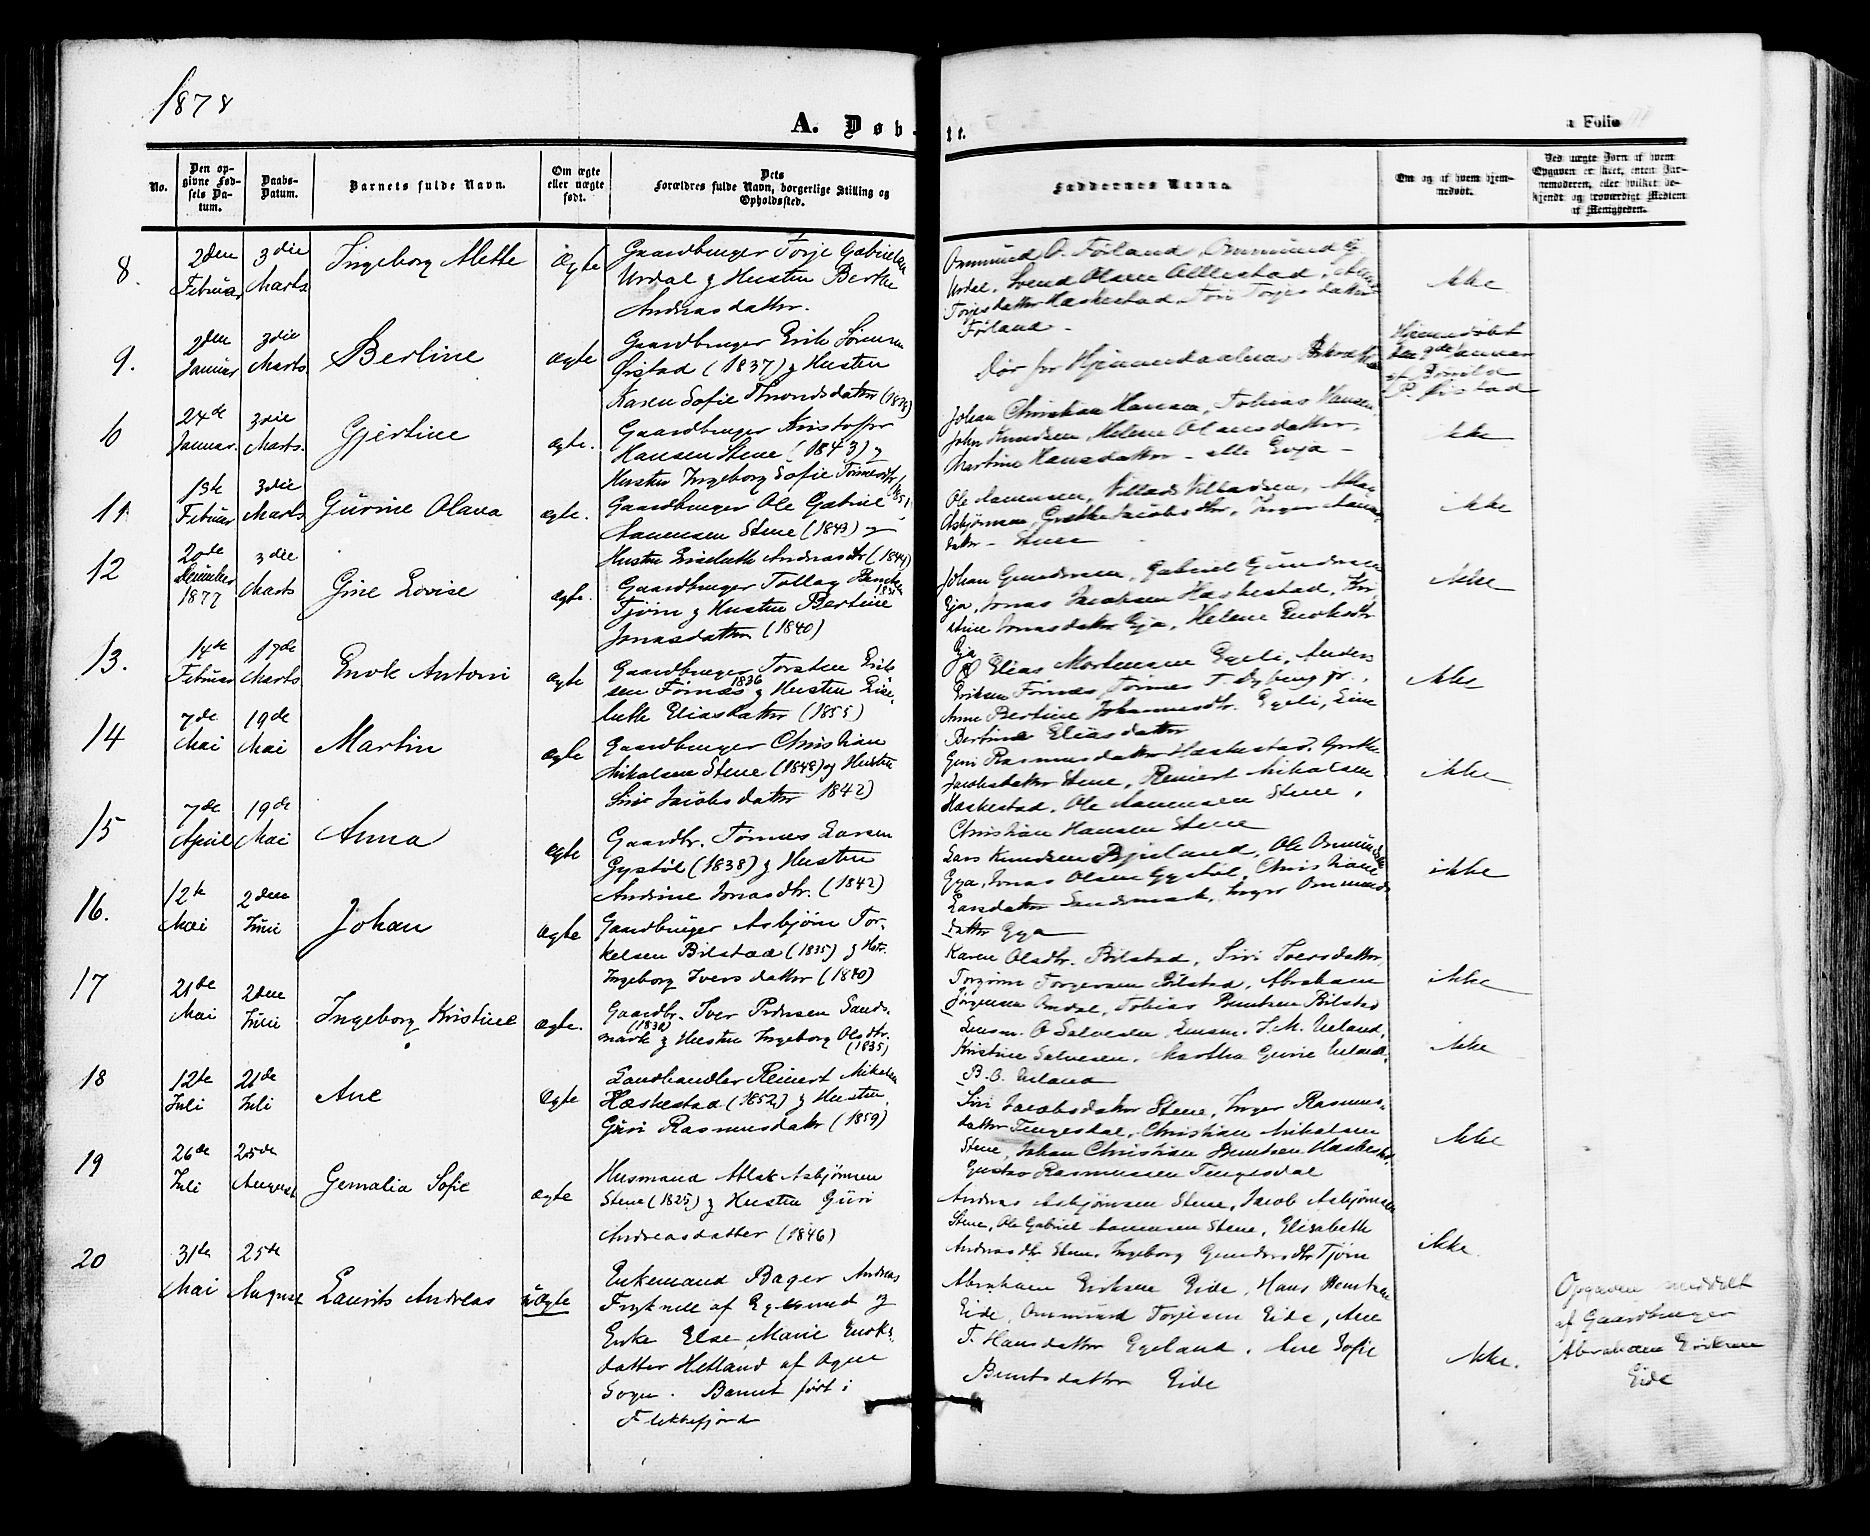 1878
A. Døb-
te.
Folio
No.
Den op-
givne Fød-
sels Da-
tum.
Daabs-
Datum.
Barnets fulde Navn.
Om ægte
eller uægte
født.
Dets
Forældres fulde Navn, borgerlige Stilling og
Opholdssted.
Faddernes Navne
Om og af hvem hjem-
medøbt.
Ved uægte Børn af hvem
Opgaven er skeet, enten Bar-
nemoderen, eller hvilket be-
kjendt og troværdigt Medlem
af Menigheden.
8.
2den
Februar
3die
Marts
Ingeborg Mette
Ægte
Gaardbruger Torje Gabrielsen
Urdal g Hustru Berthe
Andreasdatter.
Ommund O. Føland, Ommund G
Urdal, Svend Olsen Allestad,
Torjesdatter Hæskestad, Torjesdatter
Føland
Ikke
9.
2den
Januar
3die
Marts
Berline
ægte
Gaardbruger Erik Sørensen
Ørstad (1837) g Hustru
Karen Sofie Throndsdatter (1838)
Død før Hjemmedaabens Bekræftelse
Hjemmedøbt
den 9de Januar
af
P. Ørstad
6
24de
Januar.
3die
Marts.
Gjertine
ægte.
Gaardbruger Kristoffer
Hansen Stene (1843) g
Hustru Ingeborg Sofie Tønnesdtr
Johan Christian Hansen, Tobias Hansen,
John Knudsen, Helene Olausdatter,
Martine Hansdatter - alle Evja -
Ikke
11.
13te
Februar
3die
Marts
Gurine Olava
ægte.
Gaardbruger Ole Gabriel
Aanensen Stene (1843) g
Hustru Elisabeth Andreasdtr (1844)
Ole Aanensen, Villads Villadsen,
Asbjørnsen, Grethe Jacobsdtr, Inger Aanens
datter - Stene
ikke
12
20de
December
1877
3die
Marts
Gine Lovise
ægte.
Gaardbruger Tollag Bentsen
Tjørn g Hustru Bertine
Jonasdatter (1840)
Johan Gundersen, Gabriel Gundersen
Eja, Jonas Jacobsen Hæskestad, Kri-
stine Jonasdatter Eja, Helene Enoksdtr
Eja
Ikke
13.
14de
Februar
17de
Marts
Enok Antoni
ægte
Gaardbruger Torsten Erik-
sen Førnæs 1836 g Hustru Elisa-
beth Eliasdatter (1855)
Elias Mortensen Egeli, Anders
Eriksen Førnæs, Tønnes T. Dybing jr.,
Anne Bertine Johannesdtr. Egeli, Line
Bertine Eliasdatter
Ikke
14
7de
Mai
19de
Mai
Martin
ægte
Gaardbruger Christian
Mikalsen Stene (1848) g Hustru
Siri Jacobsdatter 1842)
Guri Rasmusdatter Hæskestad, Grethe
Jacobsdatter Stene, Reinert Mikalsen
Hæskestad, Ole Aanensen Stene,
Christian Hansen Stene
ikke
15
7de
April
19de
Mai
Anna
ægte
Gaardbr. Tønnes Larsen
Gystøl (1838) g Hustru
Andrine Jonasdtr. (1842)
Lars Knudsen Bjuland, Ole Ommundsen
Gya, Jonas Olsen Gystøl, Christiane
Larsdatter Sandsmark, Inger Ommunds
datter Gya
ikke
16.
12te
Mai
2den
Juni
Johan
ægte
Gaardbruger Asbjørn Tor-
kelsen Bilstad (1835) g Hstr.
Ingeborg Iversdatter (1840)
Karen Olsdtr. Bilstad, Siri Iversdatter,
Torgrim Torgersen Bilstad, Abraham
Jørgensen Omdal, Tobias Bentsen Bilstad
ikke
17
21de
Mai
2den
Juni
Ingeborg Kristine
ægte.
Gaardbr. Iver Pedersen Sands-
mark g Hustru Ingeborg Olsdtr.
(1835)
Lensm. O Salvesen, Lensm. S. M. Ueland,
Kristine Salvesen, Martha Gurie Ueland,
B. O. Ueland
ikke
18
12te
Juli
21de
Juli
Ane
Ægte
Landhandler Reinert Mikalsen
Hæskestad (1852) g Hustru
Guri Rasmusdatr (1859)
Siri Jacobsdatter Stene, Inger Rasmus-
datter Tengesdal, Christian Mikalsen
Stene, Johan Christian Bentsen Hæskestad,
Gustav Rasmussen Tengesdal
Ikke
19
26de
Juli
25de
August
Gemalia Sofie
ægte
Husmand Atlak Asbjørnsen
Stene (1825) g Hustru Guri
Andreasdatter (1846)
Andreas Asbjørnsen Stene, Jacob Asbjørnsen
Stene, Ole Gabriel Aanensen Stene, Elisabeth
Andreasdtr Stene, Ingeborg Gundersdtr Tjørn
ikke
20
31te
Mai
25de
August
Laurits Andreas
uÆgte
Enkemand Bager Andreas
af Egersund og
Enke Else Marie Enoks-
datter Hetland af Ogne
Sogn. Barnet født i
Flekkefjord
Abraham Eriksen Eide, Hans Bentsen
Eide, Ommund Torjesen Eide, Ane
T. Hansdatter Egeland, Ane Sofie
Bentsdatter Eide
Ikke.
Opgaven meddelt
af Gaardbruger
Abraham Eriksen
Eide